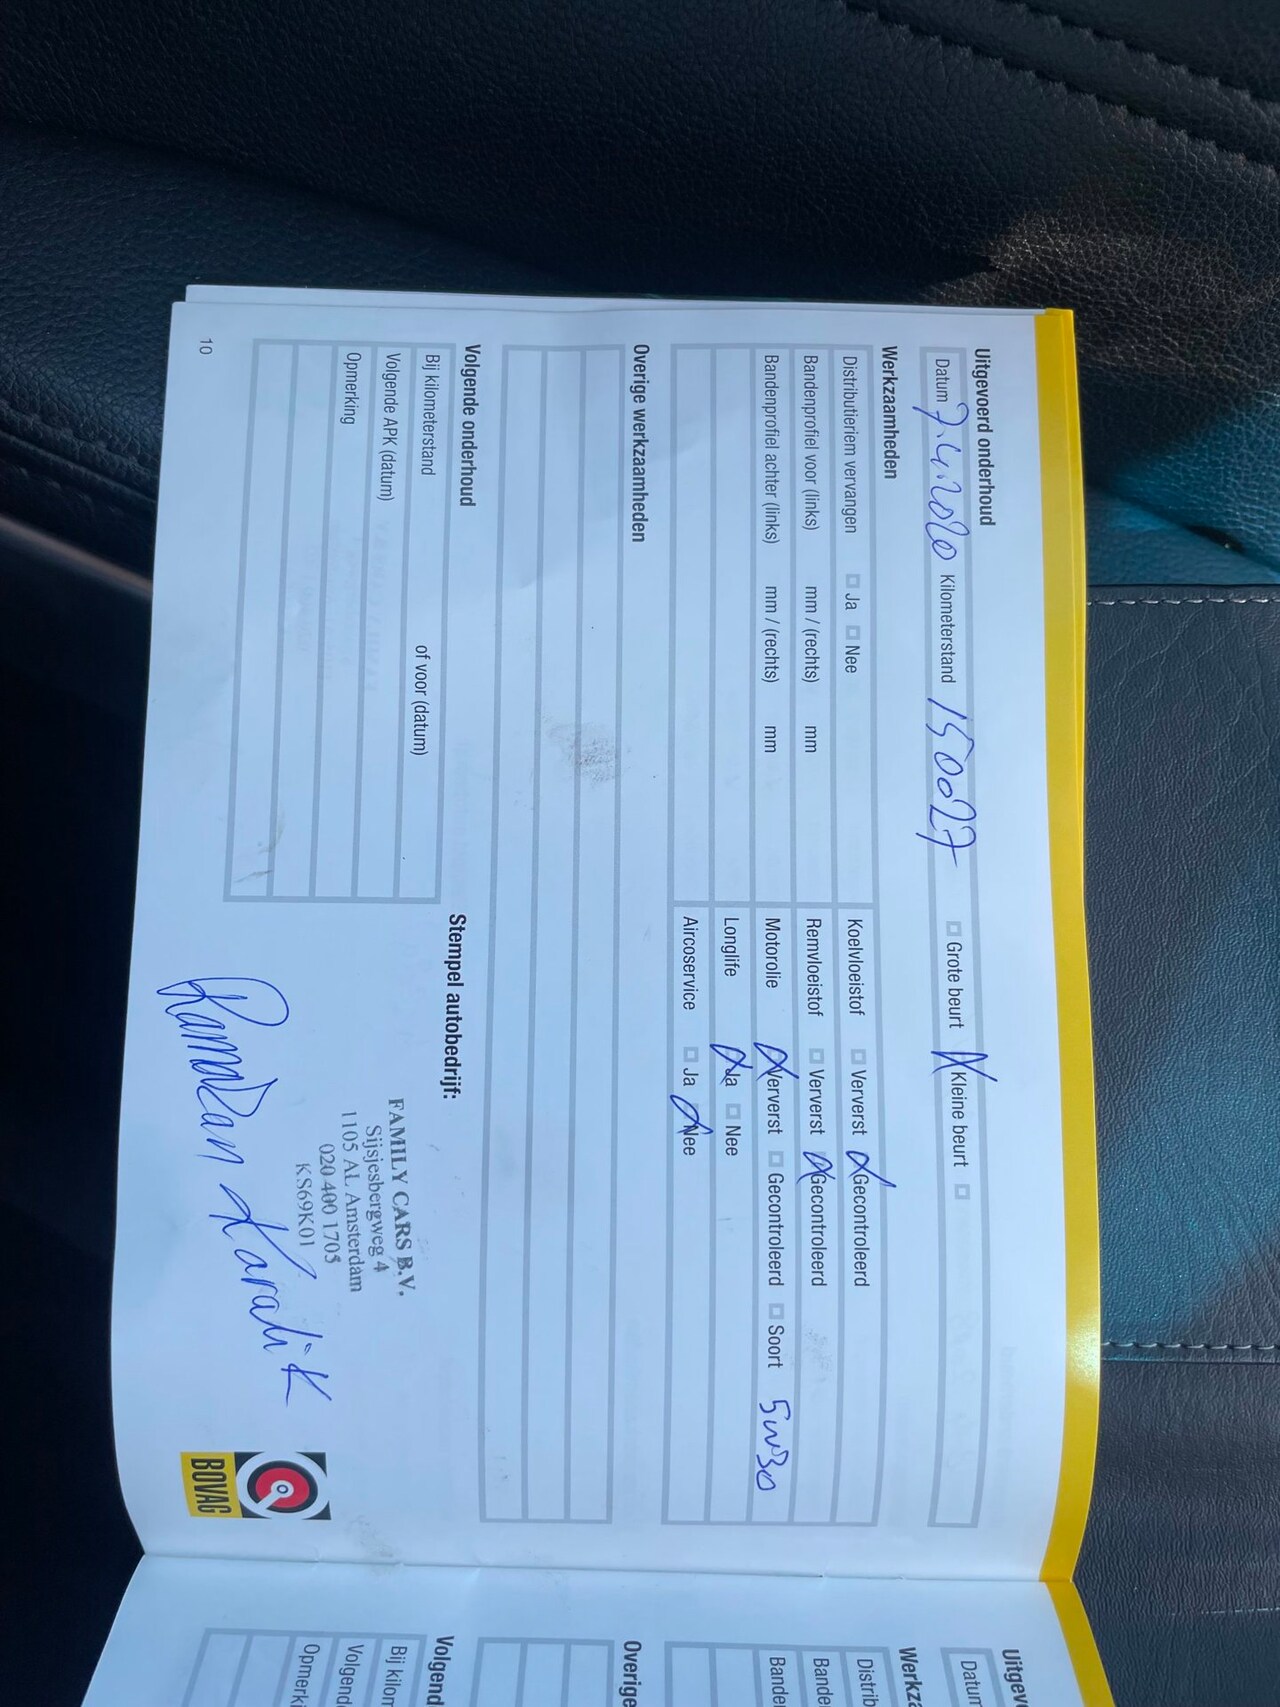 Uitgevoerd onderhoud
Datum 7.4.2020 Kilometerstand 150027 Grote beurt Kleine beurt
Werkzaamheden
Distributieriem vervangen Ja Nee Koelvloeistof Ververst Gecontroleerd
Bandenprofiel voor (links) mm / (rechts) mm Remvloeistof Ververst Gecontroleerd
Bandenprofiel achter (links) mm / (rechts) mm Motorolie Ververst Gecontroleerd Soort 5w30
Longlife Ja Nee
Aircoservice Ja Nee
Overige werkzaamheden
Volgende onderhoud
Bij kilometerstand of voor (datum)
Volgende APK (datum)
Opmerking
Stempel autobedrijf:
FAMILY CARS B.V.
Sijsjesbergweg 4
1105 AL Amsterdam
020 400 1705
KS69K01
Ramazan Karadik
BOVAG
10
Uitgev
Datum
Werkza
Distrib
Bande
Bande
Overige
Volgend
Bij kilom
Volgend
Opmerki